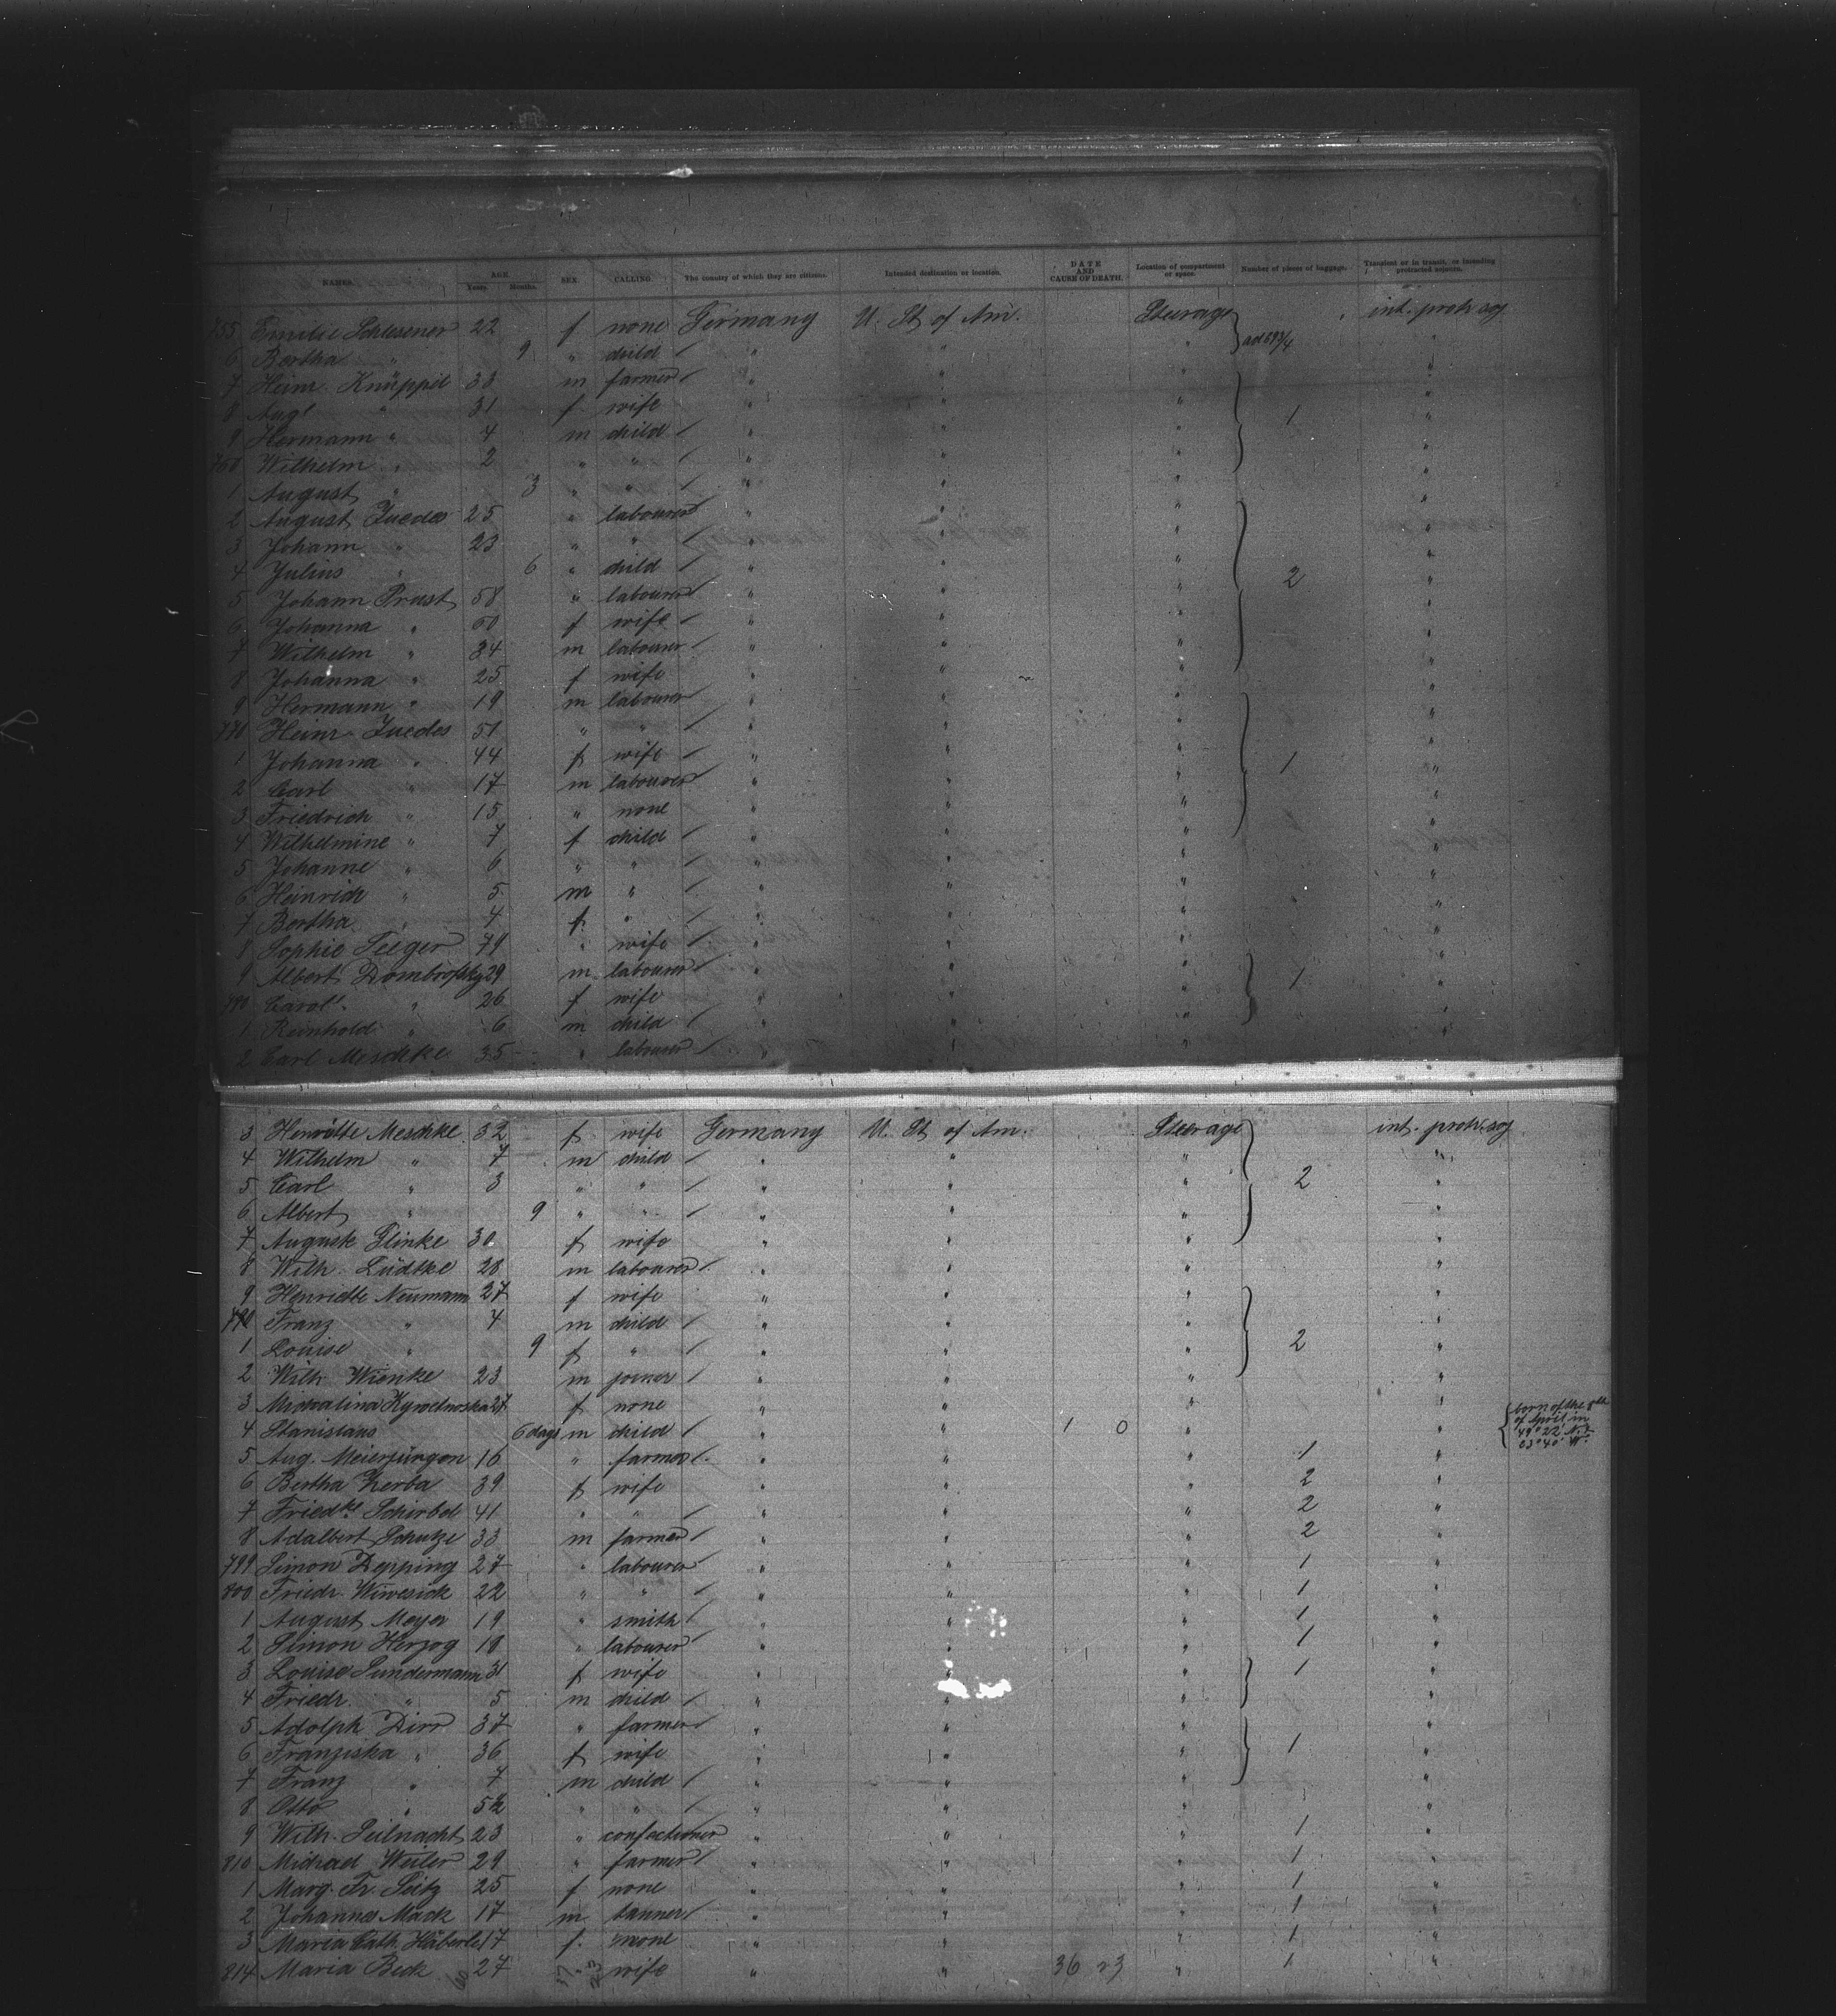 NAMES. AGE. Years. Months. SEX. CALLING. The country of which they are citizens. Intended destination or location. DATE AND CAUSE OF DEATH. Location of compartment or space. Number of pieces of baggage. Transient or in transit, or intending protracted sojourn.
755 Emilie Schlesener 22 f none Germany U. St. of Am. Steerage int. protr. soj.
6 Bertha " 9 " child / " " "
7 Heinr. Knüppel 33 m farmer / " " " "
8 Aug. " 31 f. wife " " " 1 "
9 Hermann " 4 m child / " " " "
760 Wilhelm " 2 " " / " " " "
1 August " 3 " " / " " " "
2 August Juedes 25 " labourer / " " " "
3 Johann " 23 " " / " " " "
4 Julius " 6 " child / " " " 2 "
5 Johann Prust 58 " labourer / " " " "
6 Johanna " 60 f wife / " " " "
7 Wilhelm " 34 m labourer " " " "
8 Johanna " 25 f wife " " " "
9 Hermann " 19 m labourer " " " "
770 Heinr. Juedes 51 " " / " " " "
1 Johanna " 44 f wife / " " " 1 "
2 Carl " 17 m labourer / " " " "
3 Friedrich " 15 " none " " " "
4 Wilhelmine " 7 f child / " " " "
5 Johanne " 6 " " / " " " "
6 Heinrich " 5 m " / " " " "
7 Bertha " 4 f. " / " " " "
8 Sophie Seeger 79 " wife / " " " "
9 Albert Dombrofsky 29 m labourer / " " " 1 "
780 Carol. " 26 f wife " " " "
1 Reinhold " 6 m child / " " " "
2 Carl Meschke 35 " labourer / " " " "
3 Henriette Meschke 32 f. wife Germany U. St. of Am. Steerage int. protr. soj.
4 Wilhelm " 7 m child / " " " "
5 Carl " 3 " " / " " " 2 "
6 Albert " 9 " " / " " " "
7 Auguste Glinke 30 f wife " " " "
8 Wilh. Lüdtke 28 m labourer / " " " "
9 Henriette Neumann 27 f wife " " " "
790 Franz " 4 m child / " " " "
1 Louise " 9 f " / " " " 2 "
2 Wilh. Wienke 23 m joiner / " " " "
3 f none " " " "
4 Stanislaus 6 days m child / " " 1 0 " born of the 8th of April in 49°22' N.
5 Aug. Meierjürgen 16 " farmer / " " " 1 "
6 Bertha Zerba 39 f wife " " " 2 "
7 Friedke Schirbel 41 " " / " " " 2 "
8 Adalbert Schutze 33 m farmer / " " " 2 "
799 Simon Depping 27 " labourer " " " 1 "
800 Friedr. Wiwesick 22 " " / " " " 1 "
1 August Meyer 19 " smith / " " " 1 "
2 Simon Herzog 18 " labourer " " " 1 "
3 Louise Sundermann 31 f wife " " " 1 "
4 Friedr. " 5 m child / " " " "
5 Adolph Dirr 37 " farmer / " " " "
6 Franziska " 36 f wife " " " 1 "
7 Franz " 7 m child / " " " "
8 Otto " " " / " " " "
9 Wilh. Seilnacht 23 " confectioner " " " 1 "
810 Michael Weiler 29 " farmer / " " " 1 "
1 Marg. Fr. Seitz 25 f none " " " 1 "
2 Johannes Mack 17 m tanner / " " " 1 "
3 Maria Cath. Häberle 17 f. none " " " 1 "
814 Maria Beck 27 wife " " 36 23 " 1 "